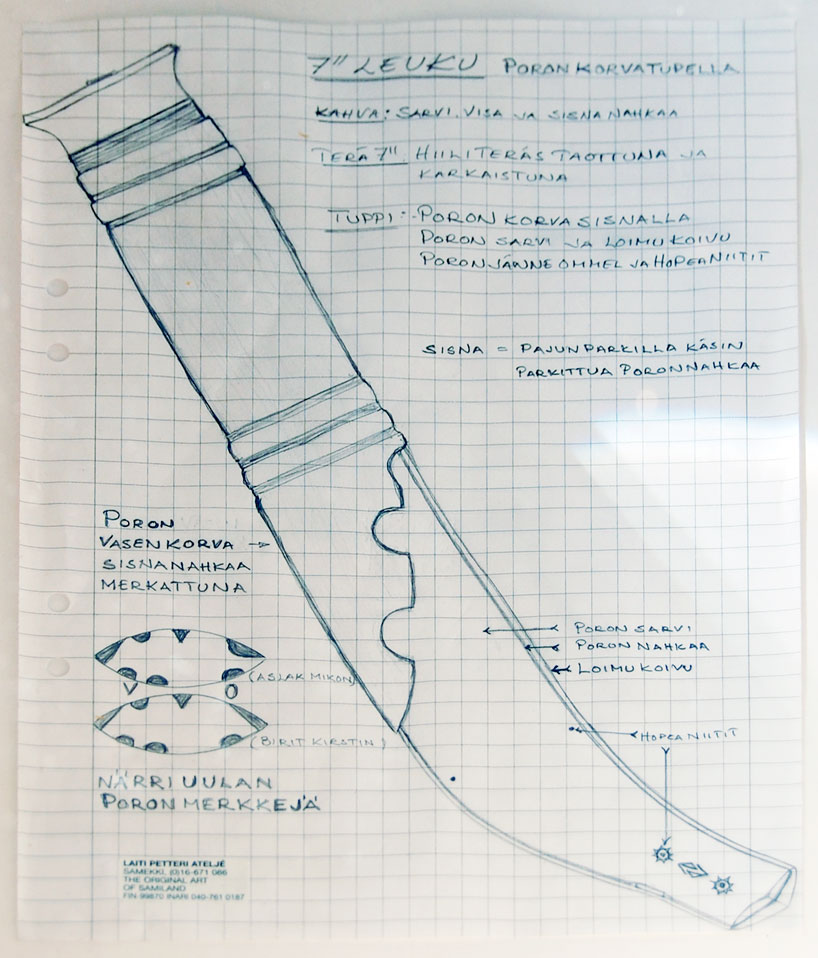 7" LEUKU PORON KORVATUPELLA
KAHVA: SARVI. VISA JA SISNA NAHKAA
TERÄ 7". HIILITERÄS TAOTTUNA JA
KARKAISTUNA
TUPPI: - PORON KORVA SISNALLA
PORON SARVI JA LOIMU KOIVU
PORON JÄNNE OMMEL JA HOPEANIITIT
SISNA = PAJUN PARKILLA KÄSIN
PARKITTUA PORONNAHKAA
PORON
VASEN KORVA
SISNANAHKAA
MERKATTUNA
PORON SARVI
PORON NAHKAA
LOIMU KOIVU
HOPEA NIITIT
(ASLAK MIKON)
V O
(BIRIT KIRSTIN)
NÄRRI UULAN
PORON MERKKEJÄ
LAITI PETTERI ATELJÉ
SAMEKKI, (0)16-671 086
THE ORIGINAL ART
OF SAMILAND
FIN 99870 INARI 040-761 0187